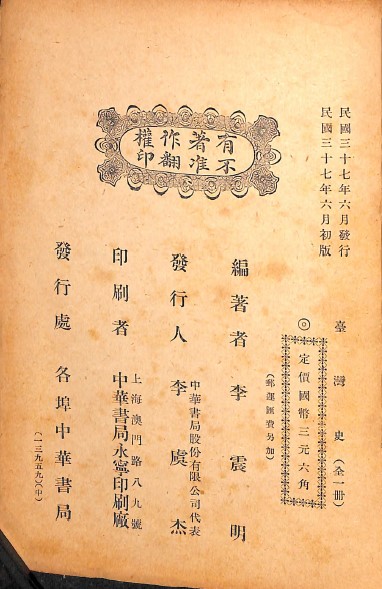 民國三十七年六月發行
民國三十七年六月初版
有著作權
不准翻印
臺灣史（全一冊）
◎定價國幣三元六角
（郵運匯費另加）
編著者 李震明
發行人 李虞杰
中華書局股份有限公司代表
印刷者 中華書局永寧印刷廠
上海澳門路八九號
發行處 各埠中華書局
（一三九五九）（中）